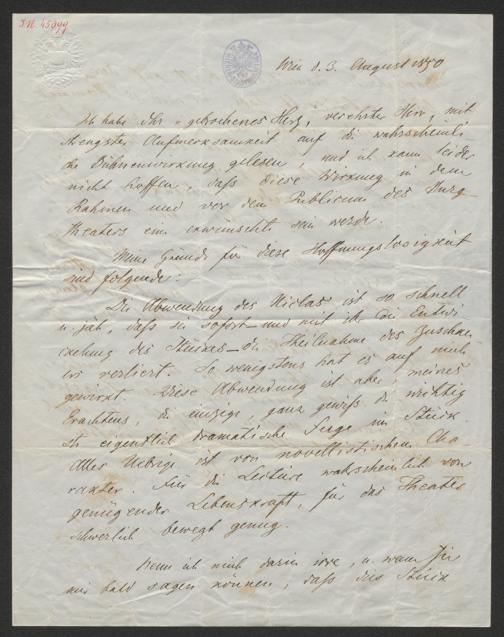 I.N. 45899
Wien d. 3. August 1850
Ich habe Ihr „gebrochenes Herz", verehrter Herr, mit
strengster Aufmerksamkeit auf die wahrscheinli
che Bühnenwirkung gelesen, und ich kann leider
nicht hoffen, daß diese Wirkung in dem
Rahmen und vor dem Publicum des Burg
theaters eine erwünschte sein werde.
Meine Gründe für diese Hoffnungslosigkeit
sind folgende:
Die Abwendung des Niclas ist so schnell
u. jäh, daß sie sofort und mit ihr die Entwi
ckelung des Stückes – die Theilnahme des Zuschau
ers verliert. So wenigstens hat es auf mich
gewirkt. Diese Abwendung ist aber, meines
Erachtens, die einzige, ganz gewiß die wichtig
ste eigentlich dramatische Fuge im Stück.
Alles Uebrige ist von novellistischem Cha
rakter. Für die Lectüre wahrscheinlich von
genügender Lebenskraft, für das Theater
schwerlich bewegt genug.
Wenn ich mich darin irre, u. wenn Sie
mir bald sagen können, daß dies Stück